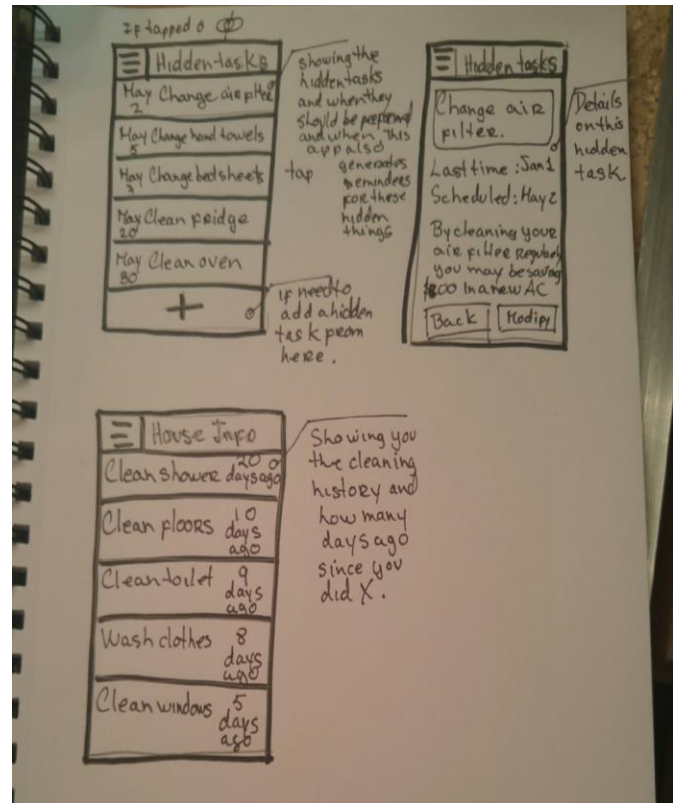 If tapped
Hidden tasks
May Change air filter
2
May Change hand towels
5
May Change bedsheets
7
May Clean fridge
20
May Clean oven
30
+
showing the
hidden tasks
and when they
should be performed
and when. This
app also
generates
reminders
for these
hidden
things
tap
if need to
add a hidden
task from
here.
Hidden tasks
Change air
filter.
Last time : Jan 1
Scheduled : May 2
By cleaning your
air filter regularly
you may be saving
in a new AC
Back
Modify
Details
on this
hidden
task
House Info
Clean shower 20
days ago
Clean floors 10
days
ago
Clean toilet 9
days
ago
Wash clothes 8
days
ago
Clean windows 5
days
ago
Showing you
the cleaning
history and
how many
days ago
since you
did X.